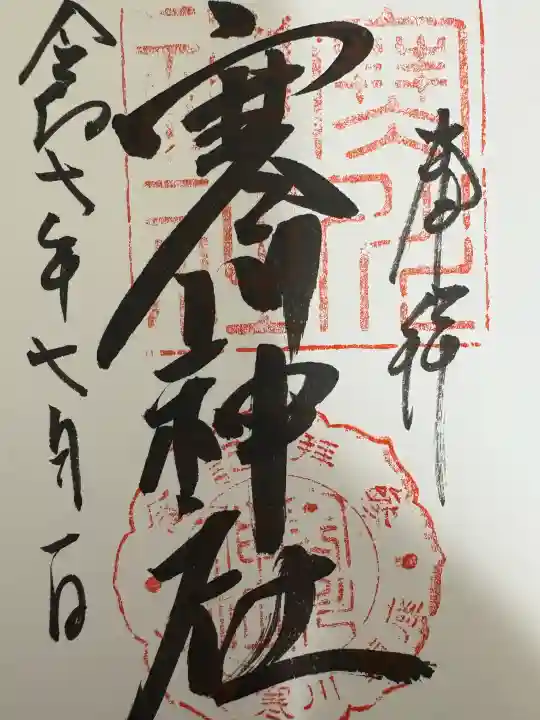 奉拝
寒川神社
令和七年七月一日